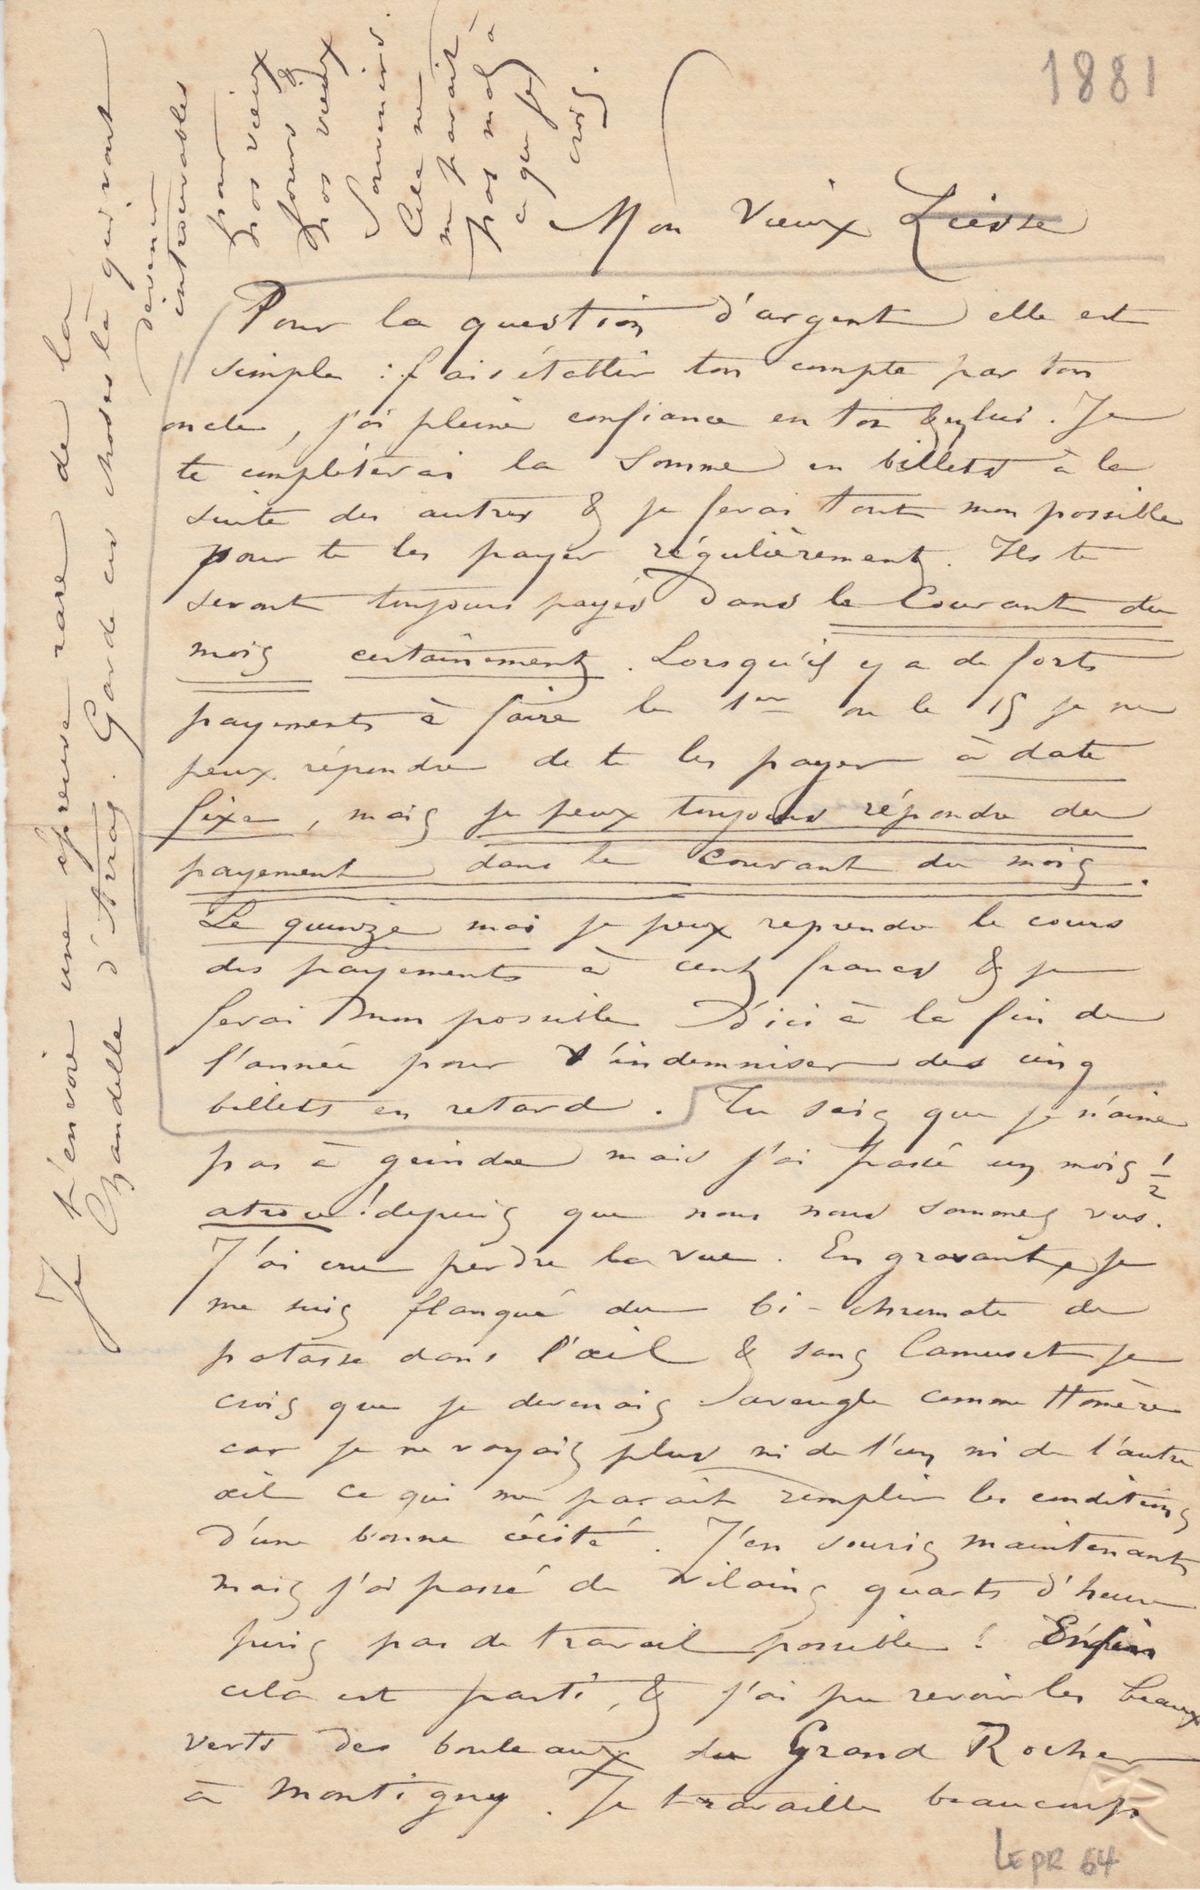 1881
Mon Vieux Liesse
Pour la question d'argent elle est
simple : fais établir ton compte par ton
oncle, j'ai pleine confiance en toi & en lui. Je
te complèterai la somme en billets à la
suite des autres & je ferai tout mon possible
pour te les payer régulièrement. Ils te
seront toujours payés dans le Courant du
mois certainement. Lorsqu'il y a de forts
payements à faire le 1er ou le 15 je ne
peux répondre de te les payer à date
fixe, mais je peux toujours répondre du
payement dans le courant du mois.
Le quinze mai je peux reprendre le cours
des payements à cent francs & je
ferai mon possible D'ici à la fin de
l'année pour t'indemniser des cinq
billets en retard. Tu sais que je n'aime
pas à geindre mais j'ai passé un mois 1/2
atroce ! depuis que nous nous sommes vus.
J'ai cru perdre la vue. En gravant, je
me suis flanqué du bi-chromate de
potasse dans l'œil & sans Camuset je
crois que je devenais aveugle comme Homère
car je ne voyais plus ni de l'un ni de l'autre
œil ce qui me parait remplir les conditions
d'une bonne cécité. J'en souris maintenant
mais j'ai passé de vilains quarts d'heure
puis pas de travail possible ! Enfin
cela est parti, & j'ai pu revoir les beaux
verts des bouleaux du Grand Rocher
à Montigny. Je travaille beaucoup
Je t'envoie une épreuve rare de la
Chandelle d'Arras. Garde ces choses là qui vont
devenir
introuvables
pour
nos vieux
jours &
nos vieux
Souvenirs.
Cela ne
me parait
pas mal à
ce que je
crois.
LEPR 64